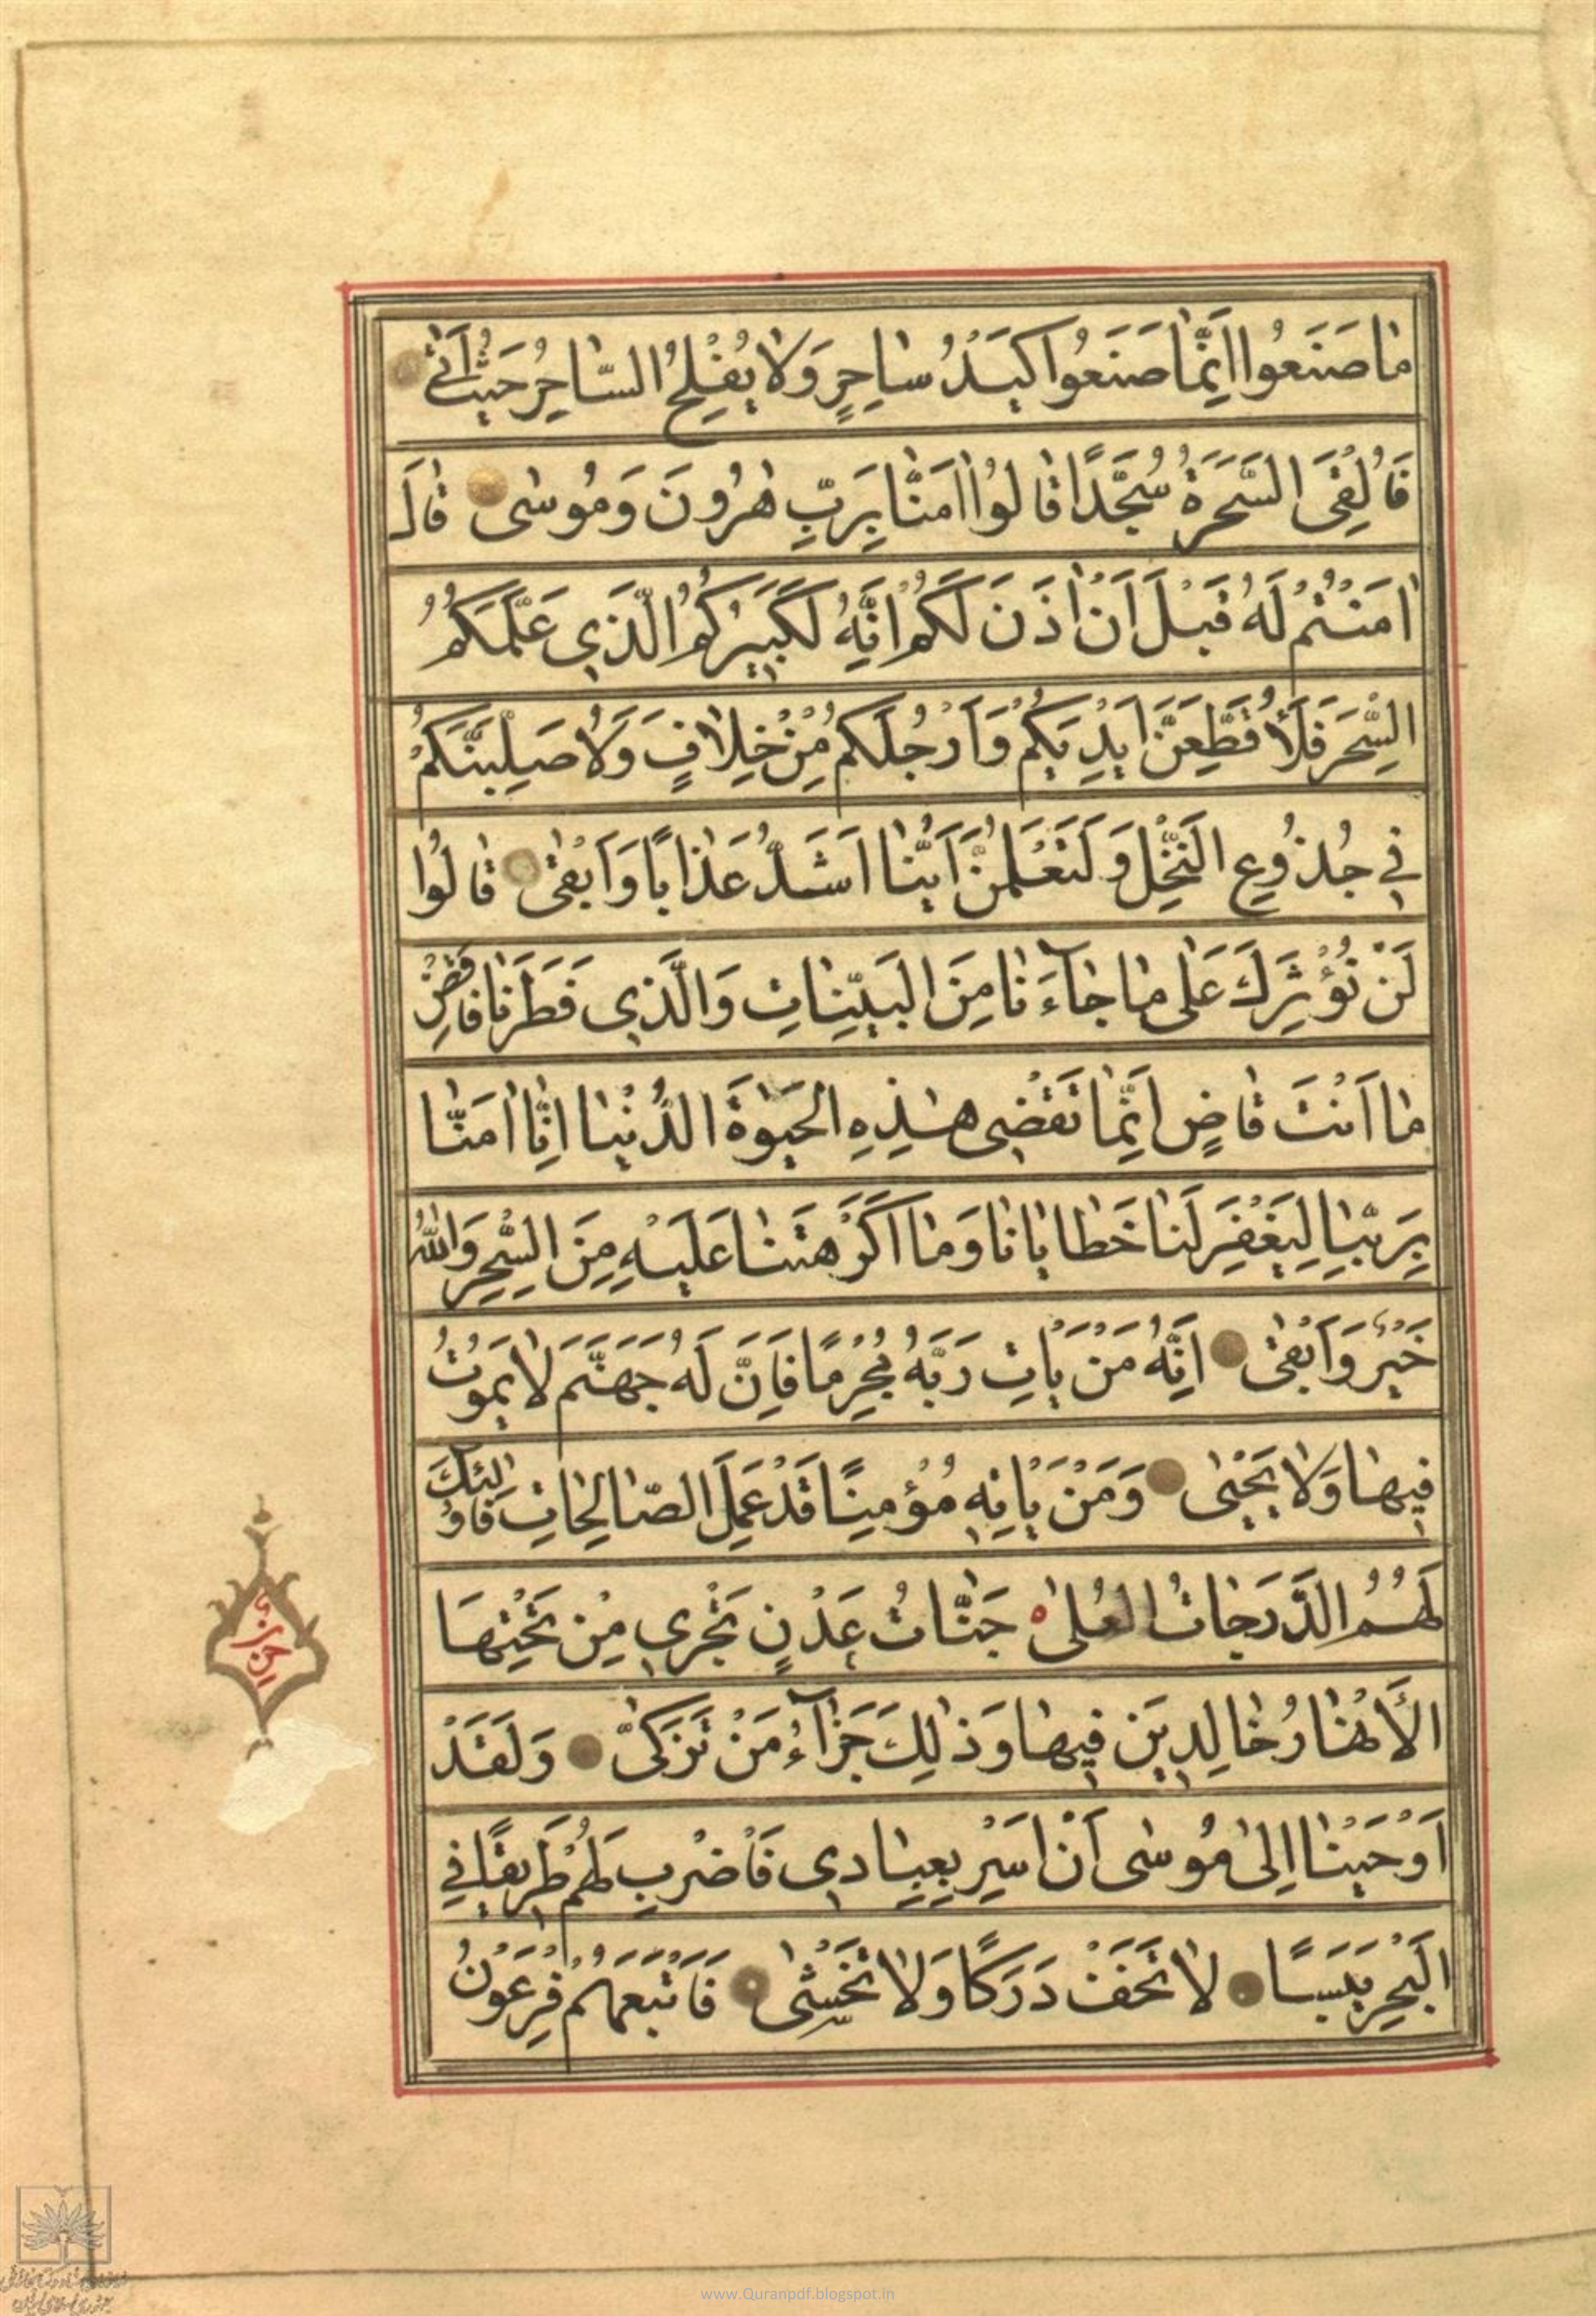 مٰا صَنَعُوا اِنَّمٰا صَنَعُوا كَيْدُ سٰاحِرٍ وَلٰا يُفْلِحُ السّٰاحِرُ حَيْثُ اَتٰى
فَاُلْقِىَ السَّحَرَةُ سُجَّدًا قٰالُوا اٰمَنّٰا بِرَبِّ هٰرُونَ وَمُوسٰى قٰالَ
اٰمَنْتُمْ لَهُ قَبْلَ اَنْ اٰذَنَ لَكُمْ اِنَّهُ لَكَبِيرُكُمُ الَّذِي عَلَّمَكُمُ
السِّحْرَ فَلَاُقَطِّعَنَّ اَيْدِيَكُمْ وَاَرْجُلَكُمْ مِنْ خِلٰافٍ وَلَاُصَلِّبَنَّكُمْ
فِي جُذُوعِ النَّخْلِ وَلَتَعْلَمُنَّ اَيُّنٰا اَشَدُّ عَذٰابًا وَاَبْقٰى قٰالُوا
لَنْ نُؤْثِرَكَ عَلٰى مٰا جٰاۤءَنٰا مِنَ الْبَيِّنٰاتِ وَالَّذِي فَطَرَنٰا فَاقْضِ
مٰا اَنْتَ قٰاضٍ اِنَّمٰا تَقْضِي هٰذِهِ الْحَيٰوةَ الدُّنْيٰا اِنّٰا اٰمَنّٰا
بِرَبِّنٰا لِيَغْفِرَ لَنٰا خَطٰايٰانٰا وَمٰا اَكْرَهْتَنٰا عَلَيْهِ مِنَ السِّحْرِ وَاللّٰهُ
خَيْرٌ وَاَبْقٰى اِنَّهُ مَنْ يَاْتِ رَبَّهُ مُجْرِمًا فَاِنَّ لَهُ جَهَنَّمَ لٰا يَمُوتُ
فِيهٰا وَلٰا يَحْيٰى وَمَنْ يَاْتِهِ مُؤْمِنًا قَدْ عَمِلَ الصّٰالِحٰاتِ فَاُولٰۤئِكَ
لَهُمُ الدَّرَجٰاتُ الْعُلٰى جَنّٰاتُ عَدْنٍ تَجْرِي مِنْ تَحْتِهَا
الْاَنْهٰارُ خٰالِدِينَ فِيهٰا وَذٰلِكَ جَزٰاۤءُ مَنْ تَزَكّٰى وَلَقَدْ
اَوْحَيْنٰا اِلٰى مُوسٰى اَنْ اَسْرِ بِعِبٰادِي فَاضْرِبْ لَهُمْ طَرِيقًا فِي
الْبَحْرِ يَبَسًا لٰا تَخَفْ دَرَكًا وَلٰا تَخْشٰى فَاَتْبَعَهُمْ فِرْعَوْنُ
www.Quranpdf.blogspot.in